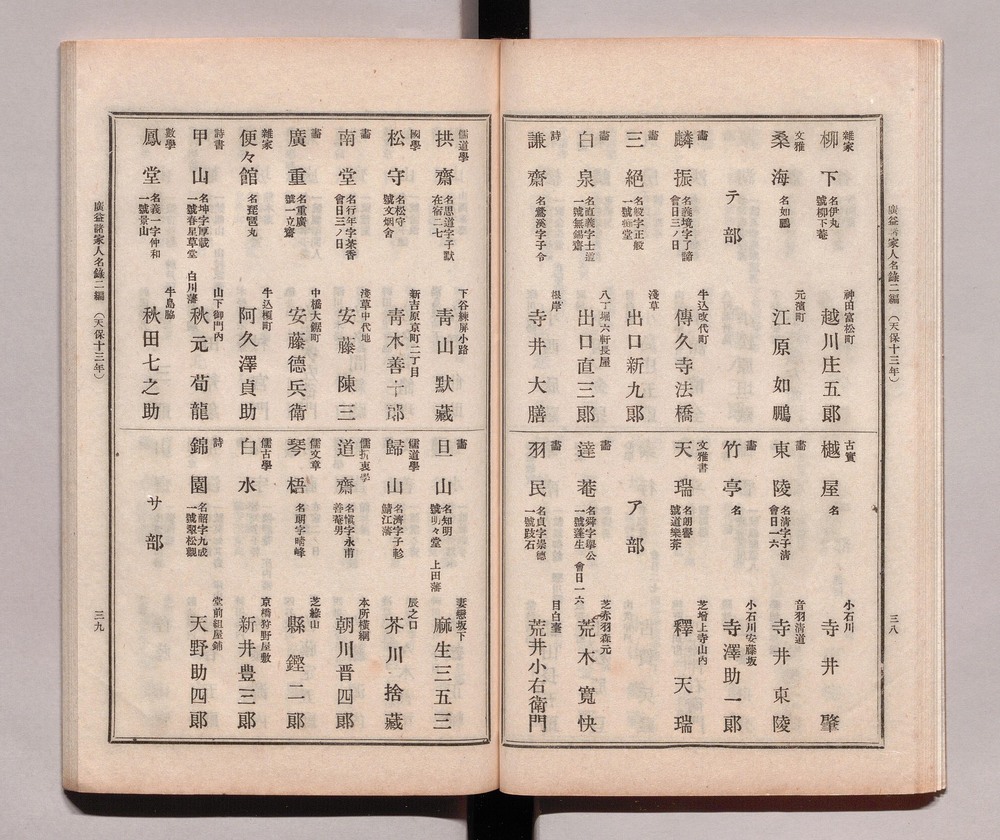 廣益諸家人名錄二編 (天保十三年)
三八
雜家
柳下 名伊丸 號柳下菴 神田富松町 越川庄五郞
文雅
桑海 名如鵬 元濱町 江原如鵬
テ部
畵
麟振 名義境字了諦 會日三ノ日 牛込改代町 傳久寺法橋
畵
三絶 淺草 出口新九郞
畵
白泉 名直義字士道 一號無錫齋 八丁堀六軒長屋 出口直三郞
詩
謙齋 名鶯溪字子令 根岸 寺井大膳
古實
樾屋 名 小石川 寺井肇
畵
東陵 名淸字子淸 會日一六 音羽淸道 寺井東陵
畵
竹亭 名 小石川安藤坂 寺澤助一郞
文雅書
天瑞 名朗譽 號道樂莽 芝增上寺山內 釋天瑞
ア部
畵
達菴 名舜字擧公 一號蓬生 會日一六 芝赤羽森元 荒木寬快
畵
羽民 名貞字崇德 一號跂石 目白臺 荒井小右衞門
儒道學
拱齋 名思道字子默 在宿二七 下谷練屏小路 靑山默藏
國學
松守 名松守 號文烟舍 新吉原京町二丁目 靑木善十郞
畵
南堂 名行年字茶香 會日三ノ日 淺草中代地 安藤陳三
畵
廣重 名重廣 號一立齋 中橋大鋸町 安藤德兵衞
雜家
便々館 名琵琶丸 牛込榎町 阿久澤貞助
詩書
甲山 名坤字厚載 一號春星草堂 白川藩 山下御門內 秋元荀龍
數學
鳳堂 名義一字仲和 一號景山 牛島脇 秋田七之助
畵
旦山 名知明 號明々堂 上田藩 妻戀坂下 麻生三五三
儒道學
歸山 名濟字子軫 鯖江藩 辰之口 芥川捨藏
儒折衷學
道齋 名愼字永甫 善菴男 本所橫綱 朝川晋四郞
儒文章
琴梧 名明字晴峰 芝綠山 縣鏗二郞
儒古學
白水 京橋狩野屋敷 新井豊三郞
詩
錦園 名韶字九成 一號翠松觀 堂前組屋鋪 天野助四郞
サ部
廣益諸家人名錄二編 (天保十三年)
三九